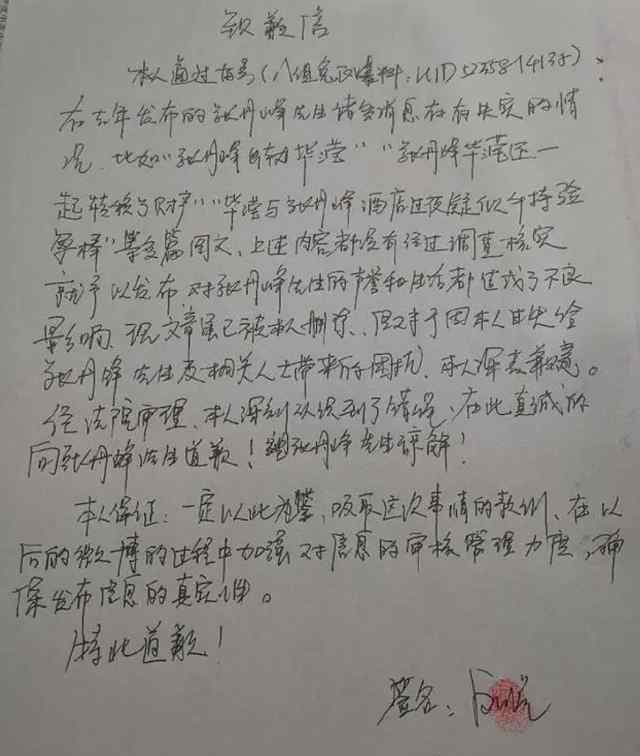 致歉信
本人通过古号(八组兔区爆料:UID5235814135),
在去年发布的张丹峰先生诸多消息存在失实的情
况,比如"张丹峰 毕滢""张丹峰毕滢还一
起转移了财产""毕滢与张丹峰酒店过夜疑似 持验
等多篇图文,上述内容都没有经过调查核实
就予以发布,对张丹峰先生的声誉和生活都造成了不良
影响,现文章虽已被本人删除,但对于因本人过失给
张丹峰先生及相关人士带来的困扰,本人深表歉意。
经法院审理,本人深刻认识到了错误,在此真诚的
向张丹峰先生道歉!望张丹峰先生谅解!
本人保证:一定以此为鉴,吸取这次事情的教训,在以
后的微博的过程中加强对信息的审核管理力度,确
保发布信息的真实性。
特此道歉!
签名: